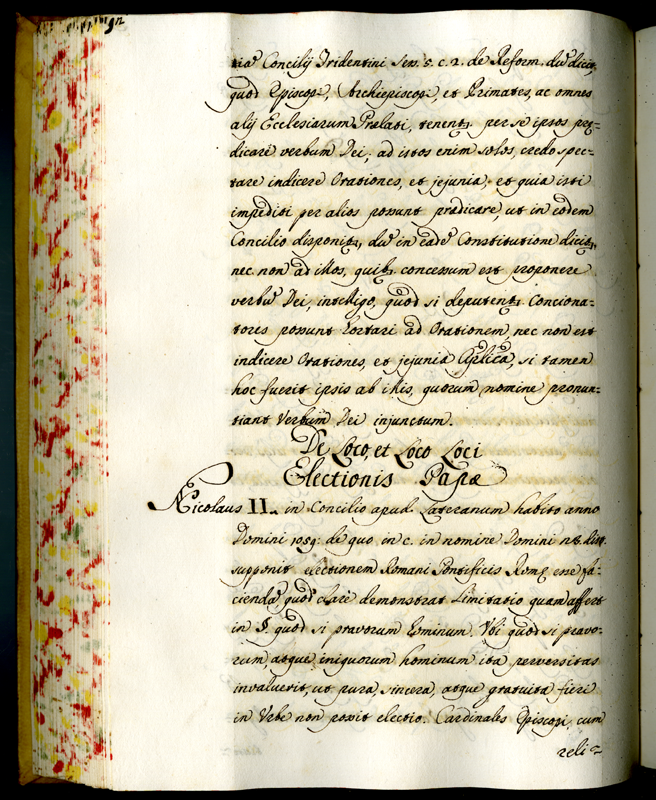 tia Concilij Tridentini Ses. 5. c. 2. de Reform. dũ dicit,
quod Episcopi, Archiepiscopi, et Primates, ac omnes
alij Ecclesiarum Prælati, tenent. per se ipsos præ-
dicare verbum Dei, ad istos enim solos, credo spec-
tare indicere Orationes, et jejunia, et quia isti
impediti per alios possunt prædicare, ut in eodem
Concilio disponit, dũ in eadẽ Constitutione dicit,
nec non ad illos, quib. concessum est proponere
verbũ Dei, intelligo, quod si deputent. Conciona-
tores possunt hortari ad Orationem, nec non est
indicere Orationes, et jejunia Aplica, si tamen
hoc fuerit ipsis ab illis, quorum nomine pronun-
tiant Verbum Dei injunctum.
De Loco, et Loco Loci
Electionis Papæ
Nicolaus II. in Concilio apud Lateranum habito anno
Domini 1059: de quo in c. in nomine Domini dist.
supponit electionem Romani Pontificis Romę esse fa-
ciendã, quod clarè demonstrat Limitatio quam affert
in §. quod si pravorum hominum. Vbi quod si pravo-
rum, atque iniquorum hominum ita perversitas
invaluerit, ut pura, sincera, atque gratuita fieri
in Vrbe non possit electio. Cardinales Episcopi, cum
reli-